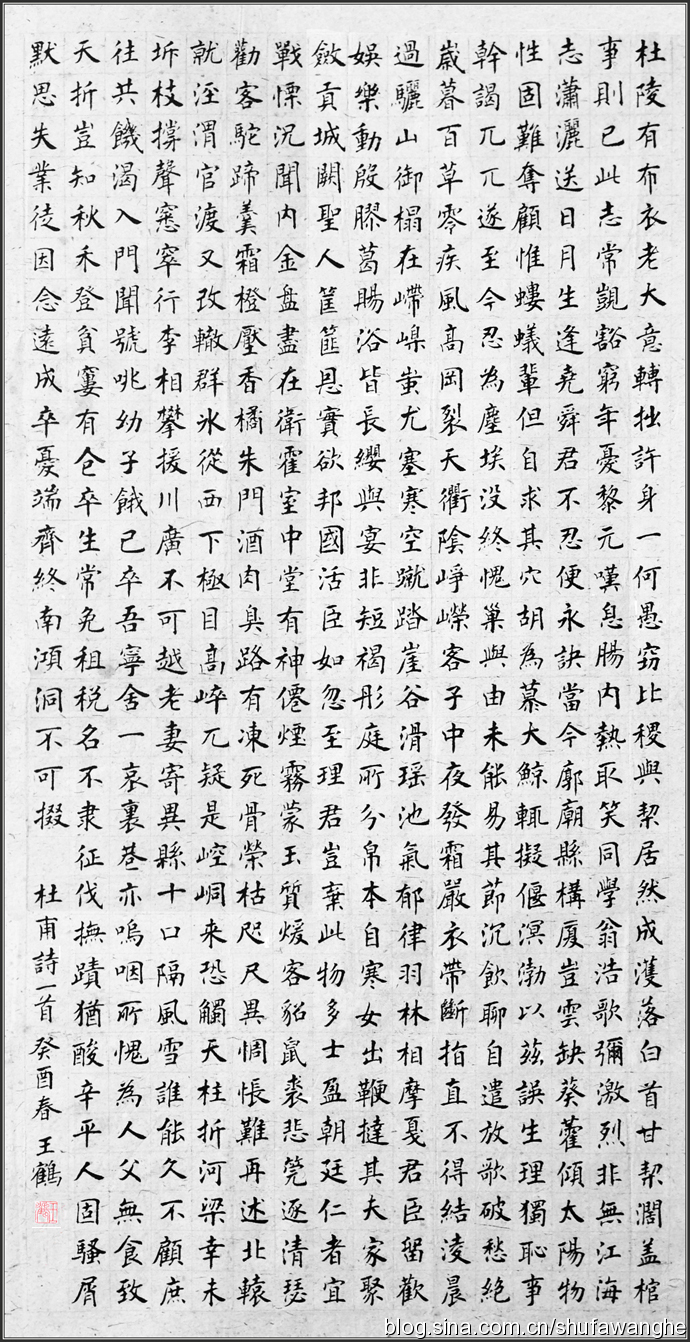 杜陵有布衣老大意轉拙許身一何愚窃比稷與契居然成濩落白首甘契濶盖棺
事則已此志常覬豁窮年憂黎元嘆息腸内熱取笑同學翁浩歌彌激烈非無江海
志瀟灑送日月生逢堯舜君不忍便永訣當今廓廟縣構厦豈雲缺葵藿傾太陽物
性固難奪顧惟螻蟻輩但自求其穴胡為慕大鯨輒擬偃溟渤以茲誤生理獨恥事
幹謁兀兀遂至今忍為塵埃没終愧巢與由未能易其節沉飲聊自遣放歌破愁絕
嵗暮百草零疾風髙岡裂天衢陰崢嶸客子中夜發霜嚴衣帶斷指直不得結淩晨
過驪山御榻在嵽嵲蚩尤塞寒空蹴踏崖谷滑瑶池氣郁律羽林相摩戛君臣留歡
娛樂動殷膠葛賜浴皆長纓與宴非短褐彤庭所分帛本自寒女出鞭撻其夫家聚
斂貢城闕聖人筐篚恩實欲邦國活臣如忽至理君豈棄此物多士盈朝廷仁者宜
戰慄況聞内金盤盡在衛霍室中堂有神僊煙霧蒙玉質煖客貂鼠裘悲筦逐清瑟
勸客駝蹄羹霜橙壓香橘朱門酒肉臭路有凍死骨榮枯咫尺異惆悵難再述北轅
就涇渭官渡又改轍群氷從西下極目髙崪兀疑是崆峒来恐觸天柱折河梁幸未
坼枝撐聲窸窣行李相攀援川廣不可越老妻寄異縣十口隔風雪誰能久不顧庶
往共饑渴入門聞號咷幼子餓已卒吾寧舍一哀裏巷亦嗚咽所愧為人父無食致
夭折豈知秋禾登貧窶有仓卒生常免租税名不隶征伐撫蹟猶酸辛平人固騷屑
默思失業徒因念遠戍卒憂端齊終南澒洞不可掇 杜甫詩一首 癸酉春 王鶴
blog.sina.com.cn/shufawanghe